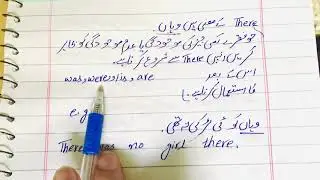 There کے معنی ہیں وہاں
جو فقرے کسی چیز کی موجودگی یا عدم موجودگی کو ظاہر
کریں انہیں There سے شروع کرنا ہے۔
اس کے بعد is, are, was, were
کا استعمال کرنا ہے۔
e.g
وہاں کوئی لڑکی نہ تھی۔
There was no girl there.